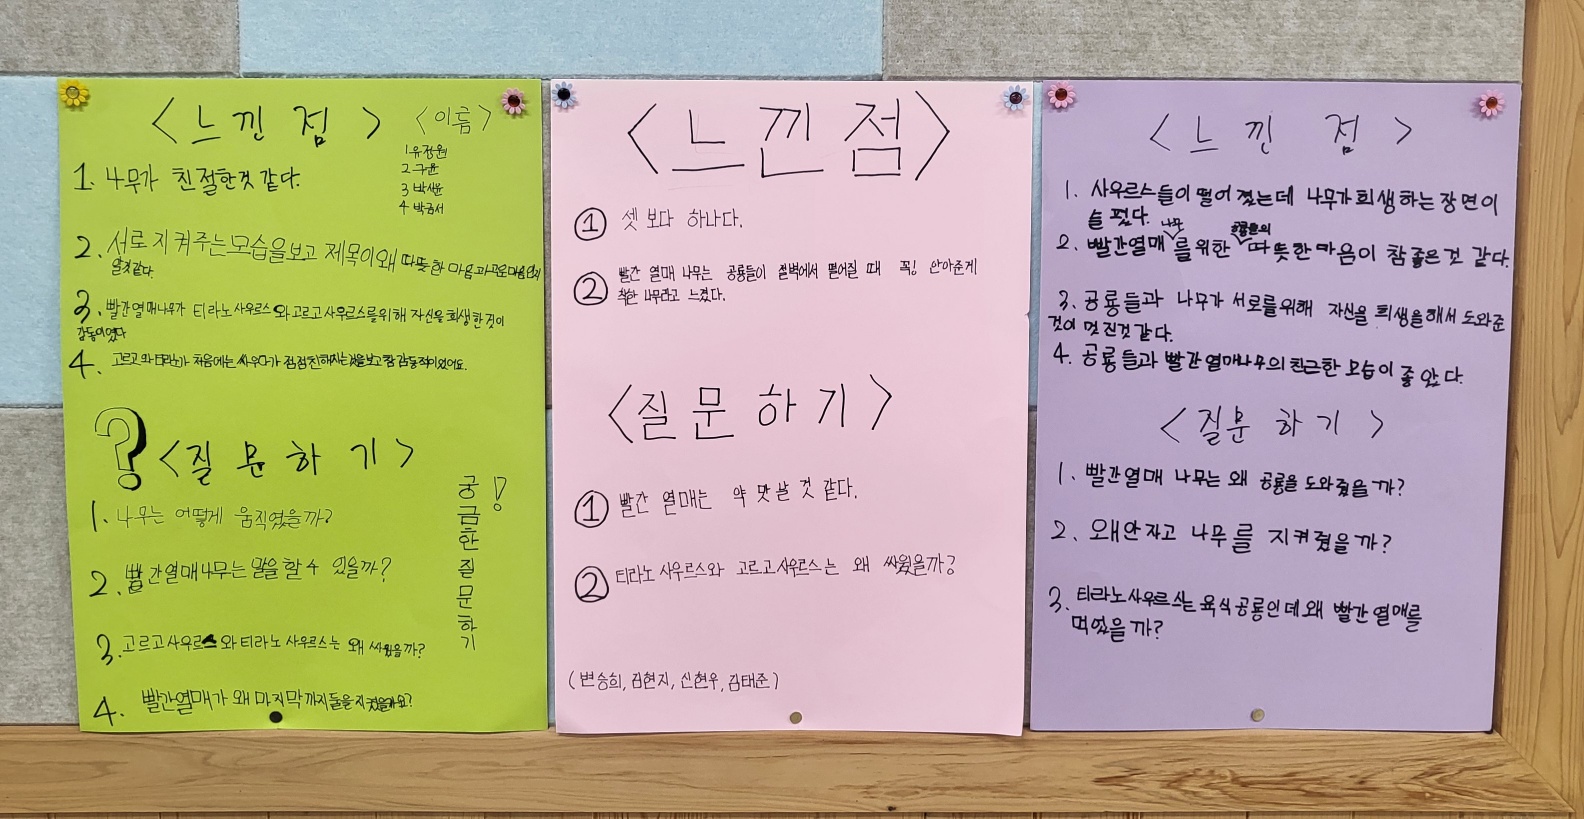 <느낀 점>
<이름>
1 유정원
2 구윤
3 박시윤
4 박금서
1. 나무가 친절한것 같다.
2. 서로 지켜주는모습을보고 제목이왜 따뜻한 마음과고운마음인지
알것같다.
3. 빨간열매나무가 티라노사우르스와고르고사우르스를위해 자신을희생한것이
감동이였다
4. 고르고와 티라노가 처음에는 싸우다가 점점친해지는것을보고 참 감동적이었어요.
? <질문하기>
1. 나무는 어떻게 움직였을까?
2. 빨간열매나무는 말을 할 수 있을까?
3. 고르고사우르스와 티라노사우르스는 왜 싸웠을까?
4. 빨간열매가 왜 마지막까지둘을지켰을까요?
궁금한질문하기!
<느낀점>
① 셋 보다 하나다.
② 빨간 열매 나무는 공룡들이 절벽에서 떨어질 때 꼭! 안아준게
착한 나무라고 느꼈다.
<질문하기>
① 빨간 열매는 약 맛 날 것 같다.
② 티라노사우르스와 고르고사우르스는 왜 싸웠을까?
(변승희, 김현지, 신현우, 김태준)
<느낀 점>
1. 사우르스들이 떨어 졌는데 나무가희생하는장면이
슬펐다.
2. 빨간열매 나무를위한 공룡들의 따뜻한마음이 참좋은것 같다.
3. 공룡들과 나무가 서로를위해 자신을 희생을해서 도와준
것이 멋진것같다.
4. 공룡들과 빨간열매나무의친근한 모습이 좋았다.
<질문하기>
1. 빨간열매 나무는 왜 공룡을 도와줬을까?
2. 왜안자고 나무를 지켜줬을까?
3. 티라노사우르스는 육식공룡인데왜 빨간열매를
먹었을까?